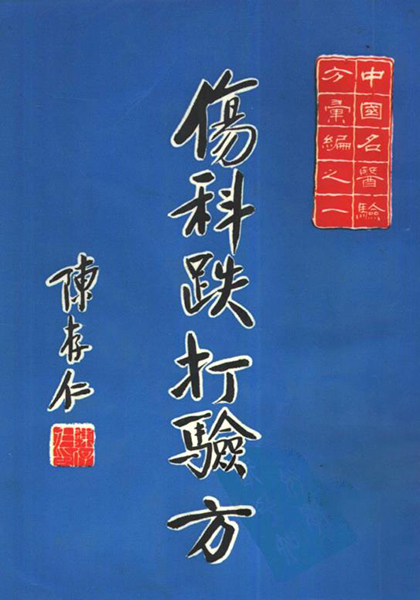 中國名醫驗
方彙編之一
傷科跌打驗方
陳存仁